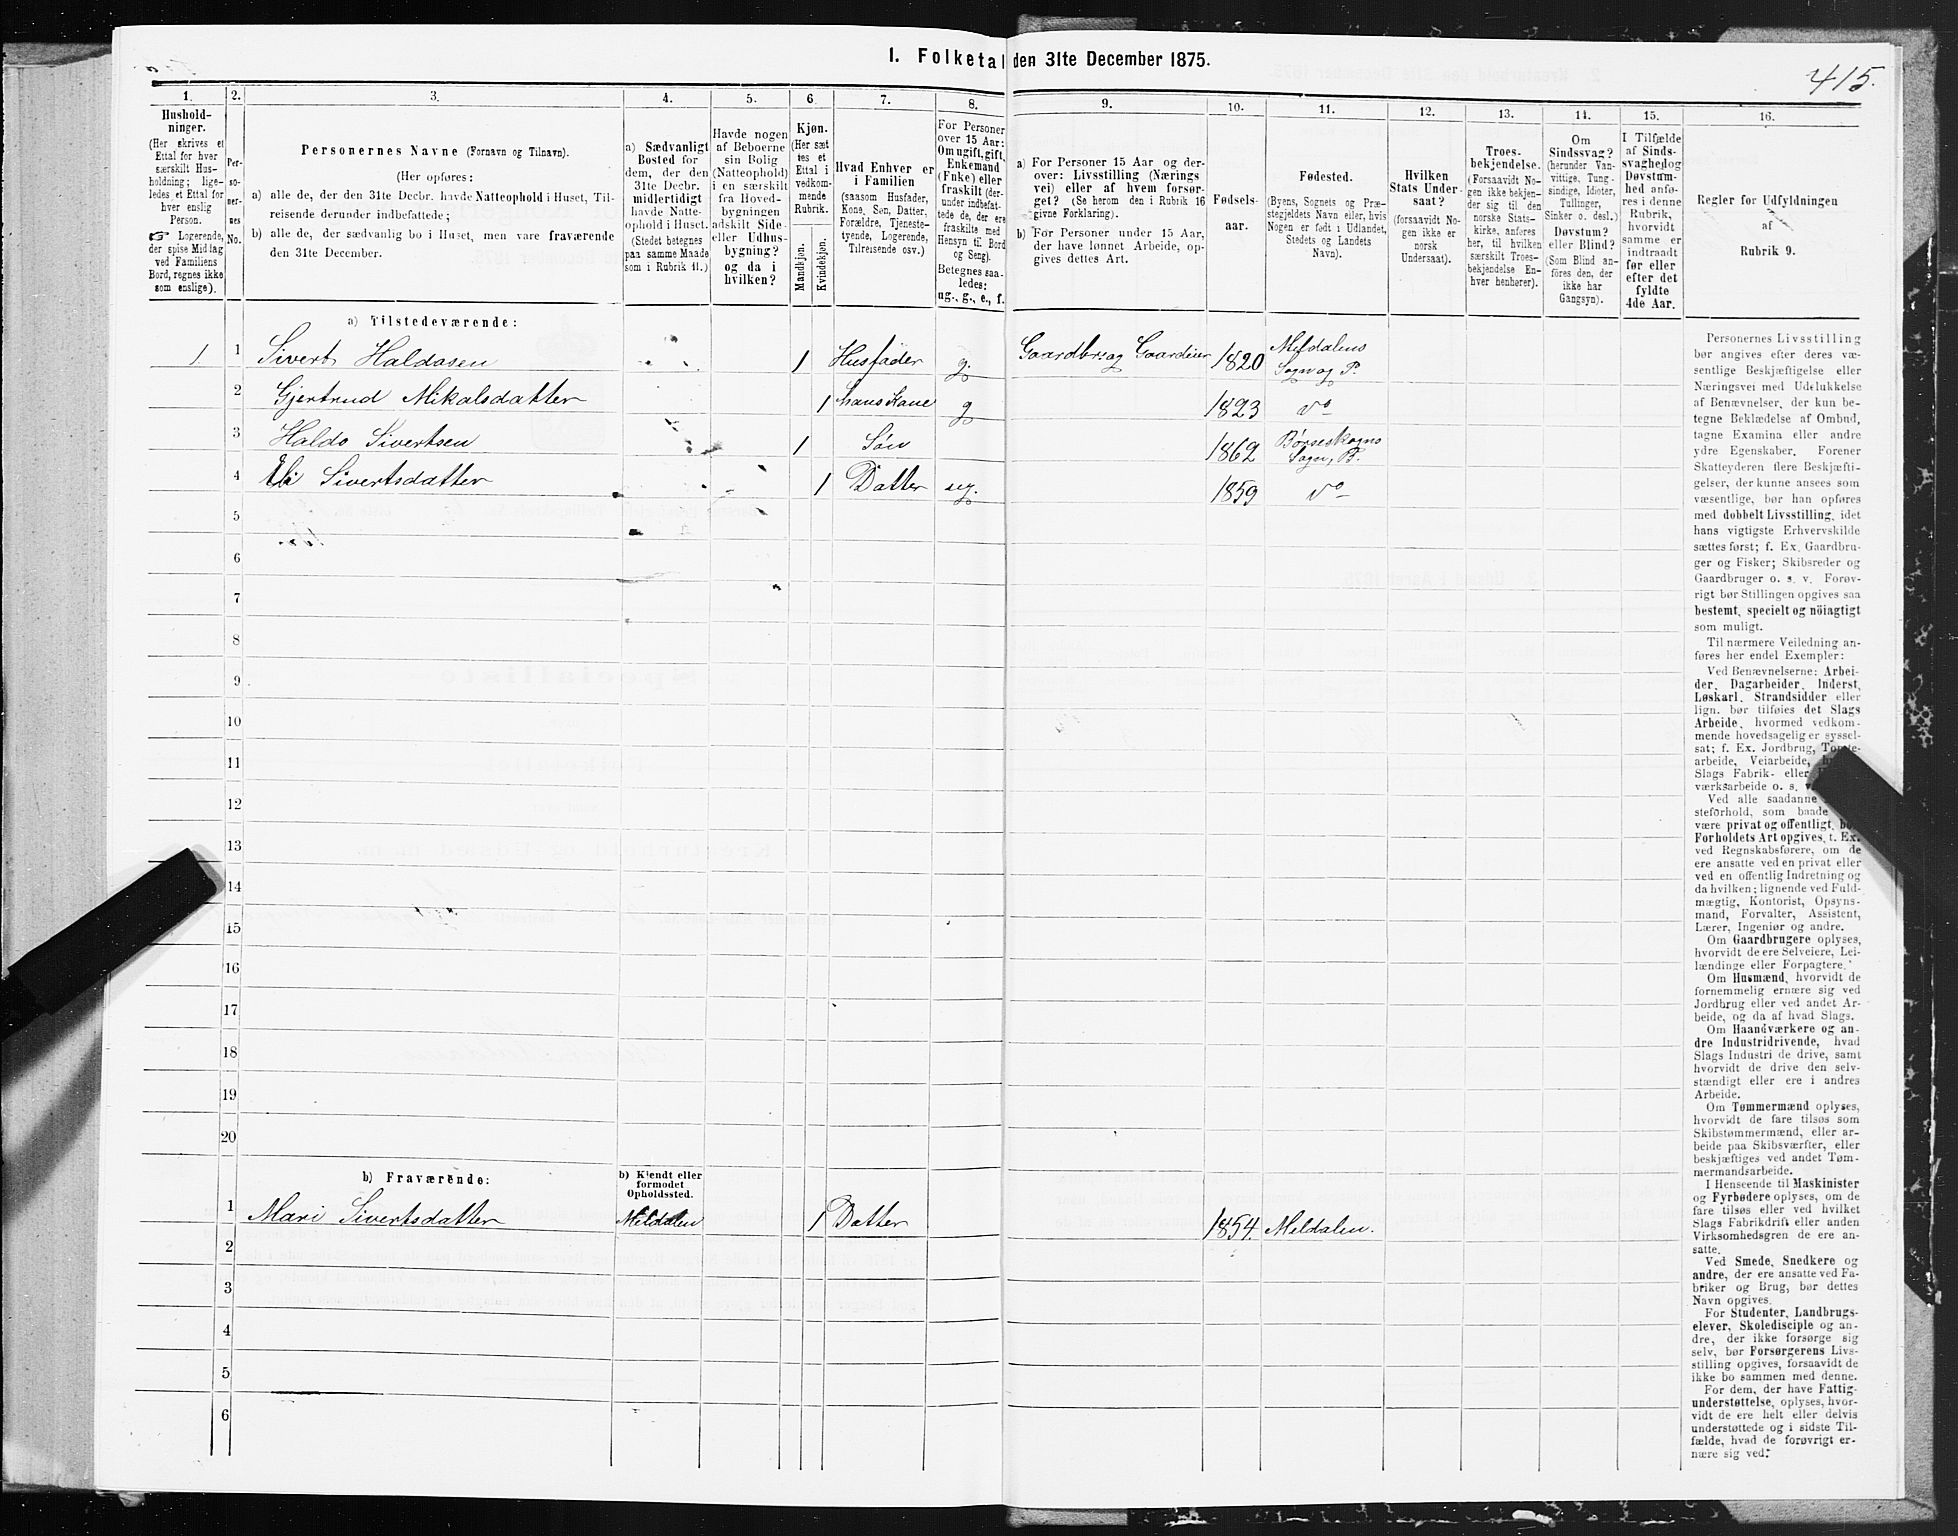 1. Folketal den 31te December 1875.
415.
1. 2. 3. 4. 5. 6. 7. 8. 9. 10. 11. 12. 13. 14. 15. 16.
Hushold-
ninger.
(Her skrives et
Ettal for hver
særskilt Hus-
holdning; lige-
ledes et Ettal for
hver enslig
Person.
☞ Logerende,
der spise Middag
ved Familiens
Bord, regnes ikke
som enslige).
Per-
so-
ner-
nes
No.
Personernes Navne (Fornavn og Tilnavn).
(Her opføres:
a) alle de, der den 31te Decbr. havde Natteophold i Huset, Til-
reisende derunder indbefattede;
b) alle de, der sædvanlig bo i Huset, men vare fraværende
den 31te December.
a) Sædvanligt
Bosted for
dem, der den
31te Decbr.
midlertidigt
havde Natte-
ophold i Huset.
(Stedet betegnes
paa samme Maade
som i Rubrik 11.)
Havde nogen
af Beboerne
sin Bolig
(Natteophold)
i en særskilt
fra Hoved-
bygningen
adskilt Side-
eller Udhus-
bygning?
og da i
hvilken?
Kjøn.
(Her sæt-
tes et
Ettal i
vedkom-
mende
Rubrik.
Mandkjøn.
Kvindekjøn.
Hvad Enhver er
i Familien
(saasom Husfader,
Kone, Søn, Datter,
Forældre, Tjeneste-
tyende, Logerende,
Tilreisende osv.)
For Personer
over 15 Aar:
Om ugift, gift,
Enkemand
(Enke) eller
fraskilt (der-
under indbefat-
tede de, der ere
fraskilte med
Hensyn til Bord
og Seng).
Betegnes saa-
ledes:
ug., g., e., f.
a) For Personer 15 Aar og der-
over: Livsstilling (Nærings-
vei) eller af hvem forsør-
get? (Se herom den i Rubrik 16
givne Forklaring).
b) For Personer under 15 Aar,
der have lønnet Arbeide, op-
gives dettes Art.
Fødsels-
aar.
Fødested.
(Byens, Sognets og Præ-
stegjeldets Navn eller, hvis
Nogen er født i Udlandet,
Stedets og Landets
Navn).
Hvilken
Stats Under-
saat?
(forsaavidt No-
gen ikke er
norsk
Undersaat).
Troes-
bekjendelse.
(Forsaavidt No-
gen ikke bekjen-
der sig til den
norske Stats-
kirke, anføres
her, til hvilken
særskilt Troes-
bekjendelse En-
hver henhører).
Om
Sindssvag?
(herunder Van-
vittige, Tung-
sindige, Idioter,
Tullinger,
Sinker o. desl.)
Døvstum?
eller Blind?
(Som Blind an-
føres den, der
ikke har
Gangsyn).
I Tilfælde
af Sinds-
svaghed og
Døvstum-
hed anfø-
res i denne
Rubrik,
hvorvidt
samme er
indtraadt
før eller
efter det
fyldte
4de Aar.
Regler for Udfyldningen
af
Rubrik 9.
a) Tilstedeværende:
1 1 Sivert Haldosen 1 Husfader g. Gaardbr. og Gaardeier 1820 Meldalens Sogn og P.
2 Gjertrud Mikalsdatter 1 hans Kone g 1823 do
3 Haldo Sivertsen 1 Søn 1862 Børseskogns Sogn, B.
4 Sivertsdatter 1 Datter ug. 1859 do
5
6
7
8
9
10
11
12
13
14
15
16
17
18
19
20
b) Fraværende:
b) Kjendt eller
formodet
Opholdssted.
1 Mari Sivertsdatter Meldalen 1 Datter 1854. Meldalen.
2
3
4
5
6
Personernes Livsstilling
bør angives efter deres væ-
sentlige Beskjæftigelse eller
Næringsvei med Udelukkelse
af Benævnelser, der kun be-
tegne Beklædelse af Ombud,
tagne Examina eller andre
ydre Egenskaber. Forener
Skatteyderen flere Beskjæfti-
gelser, der kunne ansees som
væsentlige, bør han opføres
med dobbelt Livsstilling, idet
hans vigtigste Erhvervskilde
sættes først; f. Ex. Gaardbru-
ger og Fisker; Skibsreder og
Gaardbruger o. s. v. Forøv-
rigt bør Stillingen opgives saa
bestemt, specielt og nöiagtigt
som muligt.
Til nærmere Veiledning an-
føres her endel Exempler:
Ved Benævnelserne: Arbei-
der, Dagarbeider, Inderst,
Løskarl, Strandsidder eller
lign. bør tilføies det Slags
Arbeide, hvormed vedkom-
mende hovedsagelig er syssel-
sat; f. Ex. Jordbrug, Tomte-
arbeide, Veiarbeide,
Slags Fabrik- eller
værksarbeide o. s. v.
Ved alle saadanne
steforhold, som baade
være privat og offentligt, bør
Forholdets Art opgives, t. Ex.
ved Regnskabsførere, om de
ere ansatte ved en privat eller
ved en offentlig Indretning og
da hvilken; lignende ved Fuld-
mægtig, Kontorist, Opsyns-
mand, Forvalter, Assistent,
Lærer, Ingeniør og andre.
Om Gaardbrugere oplyses,
hvorvidt de ere Selveiere, Lei-
lændinge eller Forpagtere.
Om Husmænd, hvorvidt de
fornemmelig ernære sig ved
Jordbrug eller ved andet Ar-
beide, og da af hvad Slags.
Om Haandværkere og an-
dre Industridrivende, hvad
Slags Industri de drive, samt
hvorvidt de drive den selv-
stændigt eller ere i andres
Arbeide.
Om Tømmermænd oplyses,
hvorvidt de fare tilsøs som
Skibstømmermænd, eller ar-
beide paa Skibsværfter, eller
beskjæftiges ved andet Tøm-
mermandsarbeide.
I Henseende til Maskinister
og Fyrbødere oplyses, om de
fare tilsøs eller ved hvilket
Slags Fabrikdrift eller anden
Virksomhedsgren de ere an-
satte.
Ved Smede, Snedkere og
andre, der ere ansatte ved Fa-
briker og Brug, bør dettes
Navn opgives.
For Studenter, Landbrugs-
elever, Skoledisciple og an-
dre, der ikke forsørge sig
selv, bør Forsørgerens Livs-
stilling opgives, forsaavidt de
ikke bo sammen med denne.
For dem, der have Fattig-
understøttelse, oplyses, hvor-
vidt de ere helt eller delvis
understøttede og i sidste Til-
fælde, hvad de forøvrigt er-
nære sig ved.